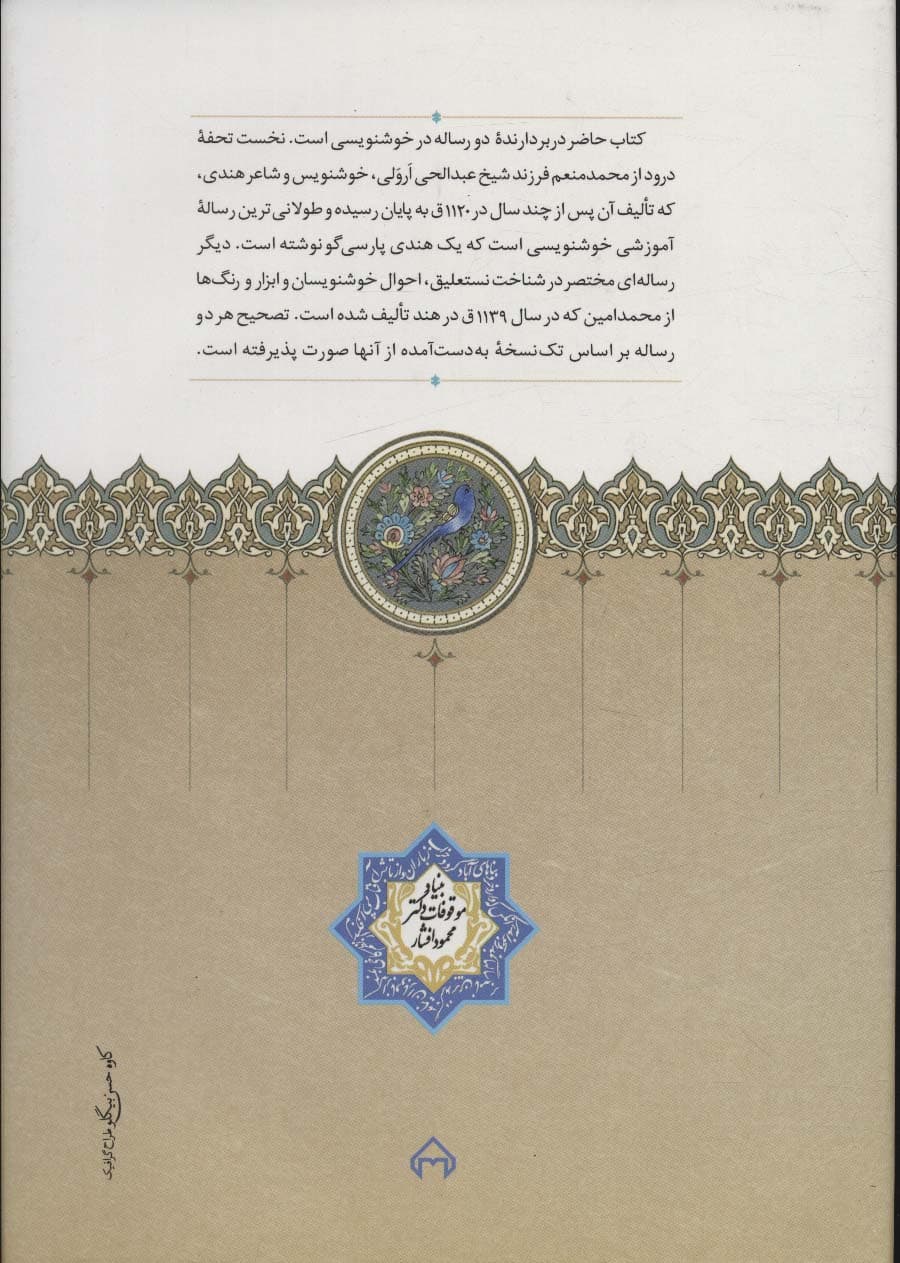 کتاب حاضر دربردارندهٔ دو رساله در خوشنویسی است. نخست تحفهٔ
درود از محمدمنعم فرزند شیخ عبدالحی اَروَلی، خوشنویس و شاعر هندی،
که تألیف آن پس از چند سال در ۱۱۲۰ق به پایان رسیده و طولانی‌ترین رسالهٔ
آموزشی خوشنویسی است که یک هندی پارسی‌گو نوشته است. دیگر
رساله‌ای مختصر در شناخت نستعلیق، احوال خوشنویسان و ابزار و رنگ‌ها
از محمدامین که در سال ۱۱۳۹ق در هند تألیف شده است. تصحیح هر دو
رساله بر اساس تک‌نسخهٔ به‌دست‌آمده از آنها صورت پذیرفته است.
بنیاد
موقوفات دکتر
محمود افشار
کاوه حسن بیگلو طراح گرافیک